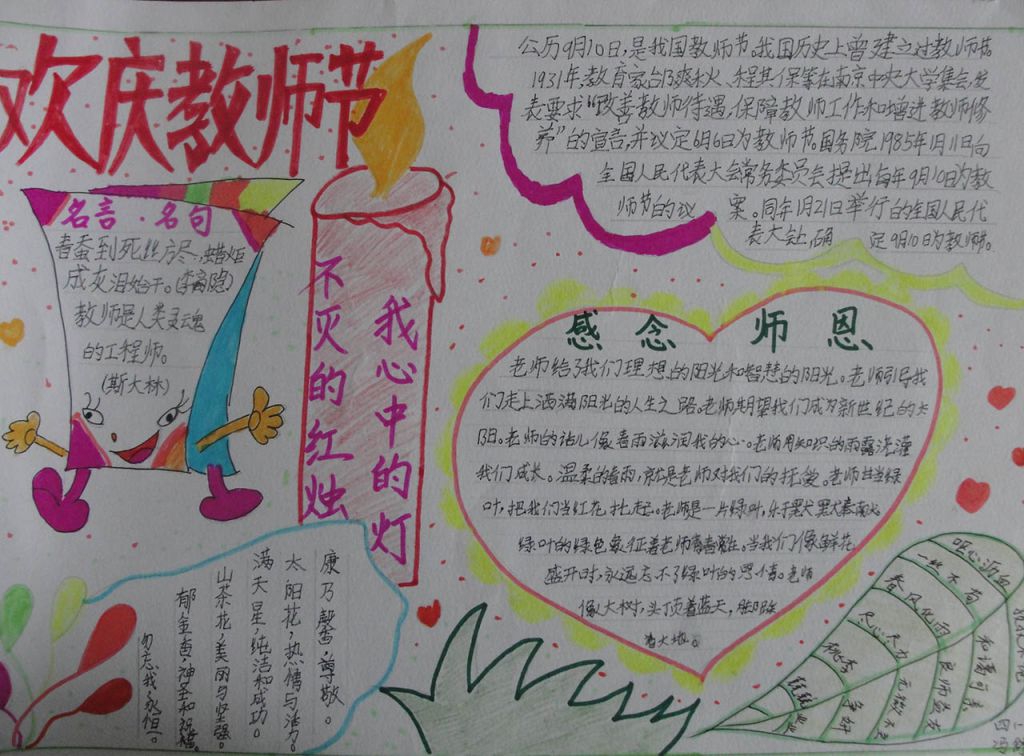 欢庆教师节
公历9月10日,是我国教师节。我国历史上曾建立过教师节
1931年,教育家邰爽秋、程其保等在南京中央大学集会,发
表要求“改善教师待遇,保障教师工作和增进教师修
养”的宣言,并议定6月6日为教师节。国务院1985年1月11日向
全国人民代表大会常务委员会提出每年9月10日为教
师节的议案。同年1月21日举行的全国人民代
表大会,确定9月10日为教师节。
名言·名句
春蚕到死丝方尽,蜡炬
成灰泪始干。(李商隐)
教师是人类灵魂
的工程师。
(斯大林)
我心中的灯
不灭的红烛
感念师恩
老师给了我们理想的阳光和智慧的阳光。老师引导我
们走上洒满阳光的人生之路。老师期望我们成为新世纪的太
阳。老师的话儿像春雨滋润我的心。老师用知识的雨露浇灌
我们成长。温柔的春雨,就是老师对我们的抚爱。老师甘当绿
叶,把我们当红花扎起。老师是一片绿叶,
绿叶的绿色象征着老师青春常在。当我们像鲜花
盛开时,永远忘不了绿叶的恩情。老师
像大树,头顶着蓝天,脚踩
着大地。
康乃馨,尊敬。
太阳花,热情与活力。
满天星,纯洁和成功。
山茶花,美丽与坚强。
郁金香,神圣和祝福。
勿忘我,永恒。
呕心沥血
一丝不苟
春风化雨
和蔼可亲
尽心尽力
良师益友
无微不至